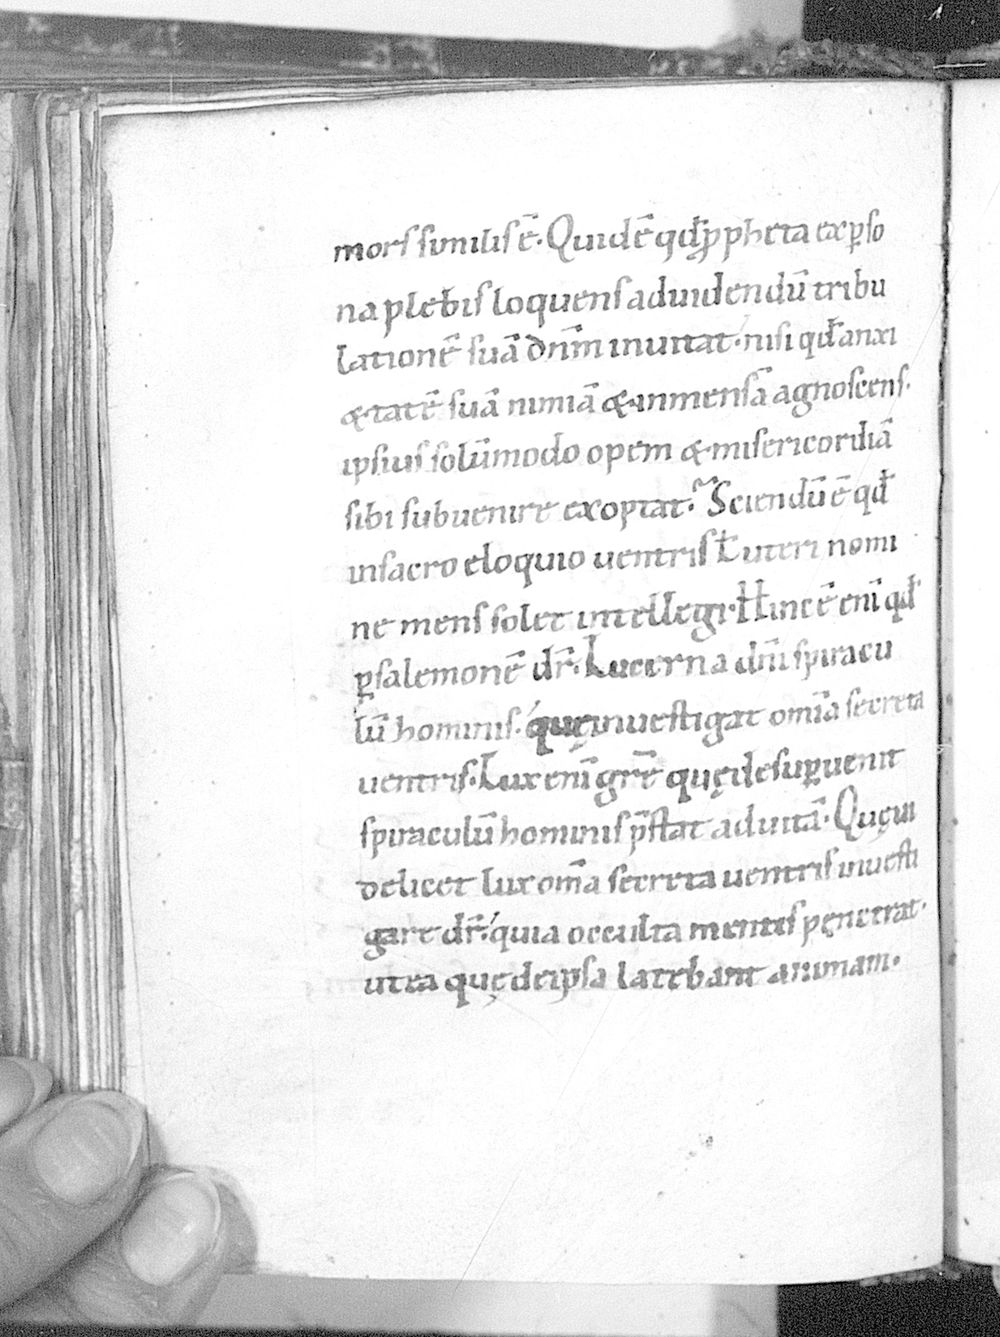 mors similis ē. Quid ē qđ ꝓpheta ex ꝑso
na plebis loquens ad uidendū tribu
lationē suā dn̄m inuitat. nisi qđ anxi
&tatē suā nimiā & inmensā agnoscens.
ipsius solūmodo opem & misericordiā
sibi subuenire exoptat. Sciendū ē qđ
in sacro eloquio uentris ł uteri nomi
ne mens solet intellegi. Hinc ē eni̅ qđ
ꝑ salemonē dr̄. Lucerna dn̄i spiracu
lū hominis. quę inuestigat om̄ia secreta
uentris. Lux eni̅ grē quę desuꝑuenit
spiraculū hominis p̄stat ad uitā. Quę ui
delicet lux om̄a secreta uentris inuesti
gare dr̄. quia occulta mentis penetrat.
ut ea quę de ipsa latebant animam.